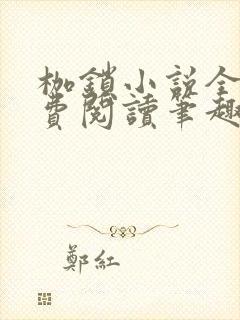 枷鎖小説全
費閱讀筆趣
鄭紅